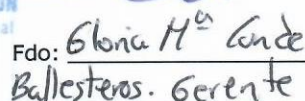 Fdo: Gloria Mª Conde
Ballesteros. Gerente